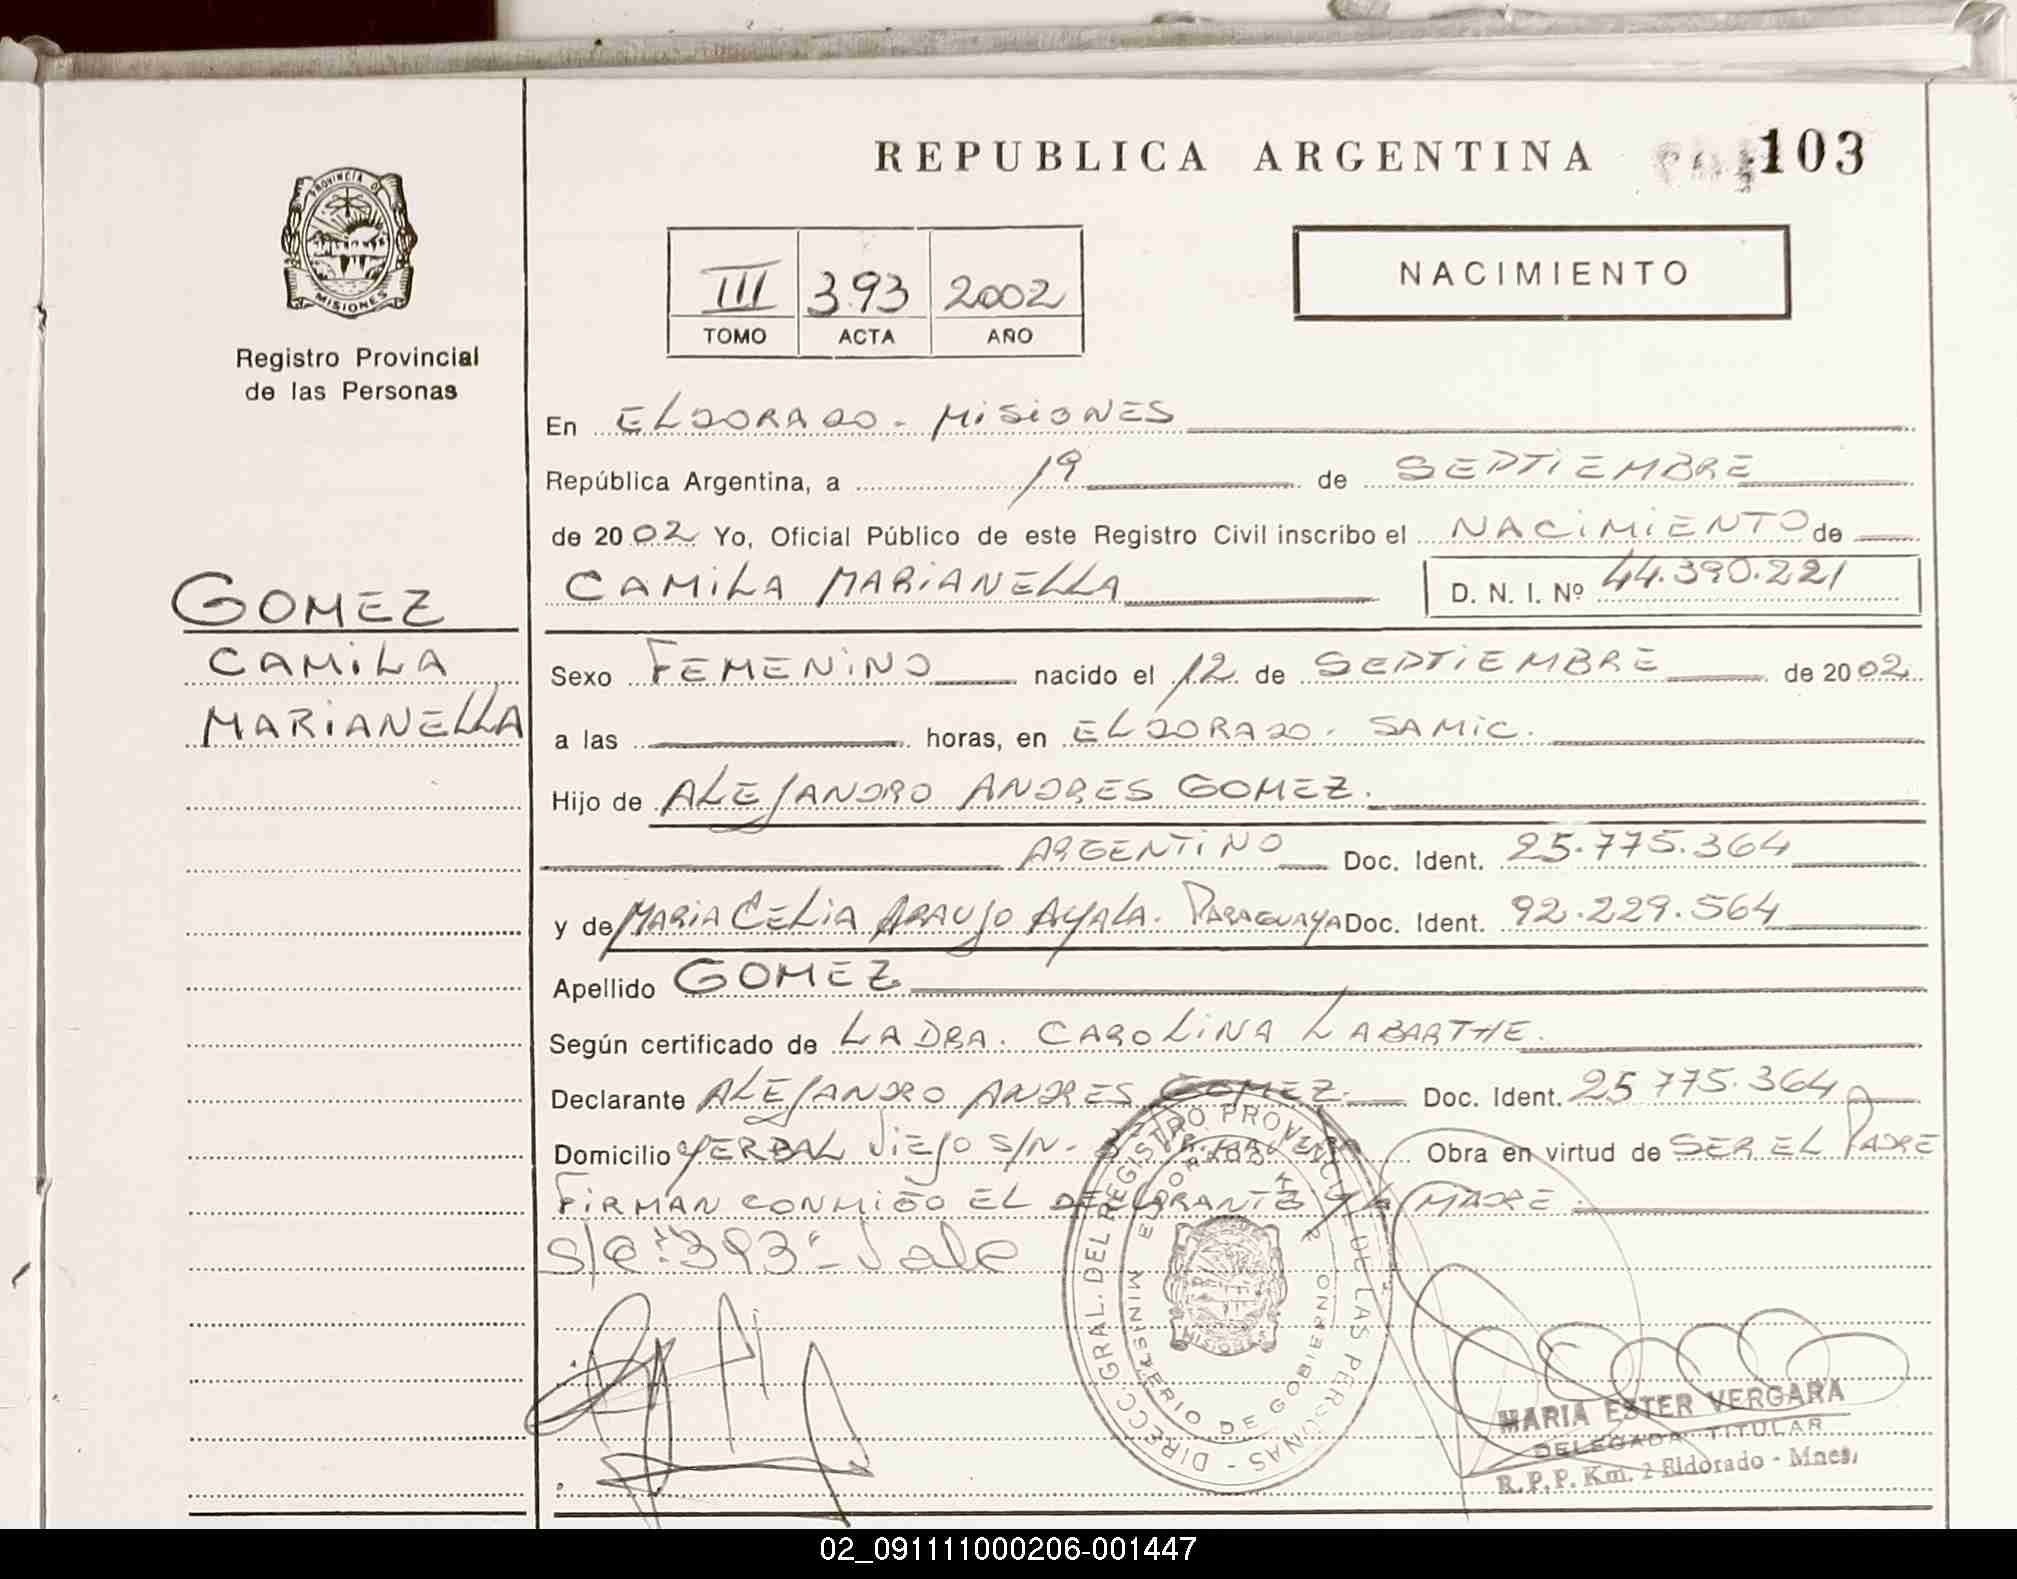 REPUBLICA ARGENTINA
103
PROVINCIA DE
MISIONES
Registro Provincial
de las Personas
III 393 2002
TOMO ACTA AÑO
NACIMIENTO
En ELDORADO - MISIONES
República Argentina, a 19 de SEPTIEMBRE
de 2002 Yo, Oficial Público de este Registro Civil inscribo el NACIMIENTO de
CAMILA MARIANELLA D. N. I. Nº 44.390.221
GOMEZ
CAMILA
MARIANELLA
Sexo FEMENINO nacido el 12 de SEPTIEMBRE de 2002
a las horas, en ELDORADO. SAMIC.
Hijo de ALEJANDRO ANDRES GOMEZ.
ARGENTINO Doc. Ident. 25.775.364
y de MARIA CELIA ARAUJO AYALA. PARAGUAYA Doc. Ident. 92.229.564
Apellido GOMEZ
Según certificado de LA DRA. CAROLINA LABARTHE.
Declarante ALEJANDRO ANDRES GOMEZ. Doc. Ident. 25 775.364
Domicilio YERBAL VIEJO S/N - Obra en virtud de SER EL PADRE
FIRMAN CONMIGO EL DECLARANTE Y LA MADRE
S/e: "393" - Vale
DIRECC. GRAL. DEL REGISTRO PROVINCIAL DE LAS PERSONAS -
MINISTERIO DE GOBIERNO
ELDORADO
MISIONES
MARIA ESTER VERGARA
DELEGADA TITULAR
R.P.P. Km. 2 Eldorado - Mnes.
02_091111000206-001447